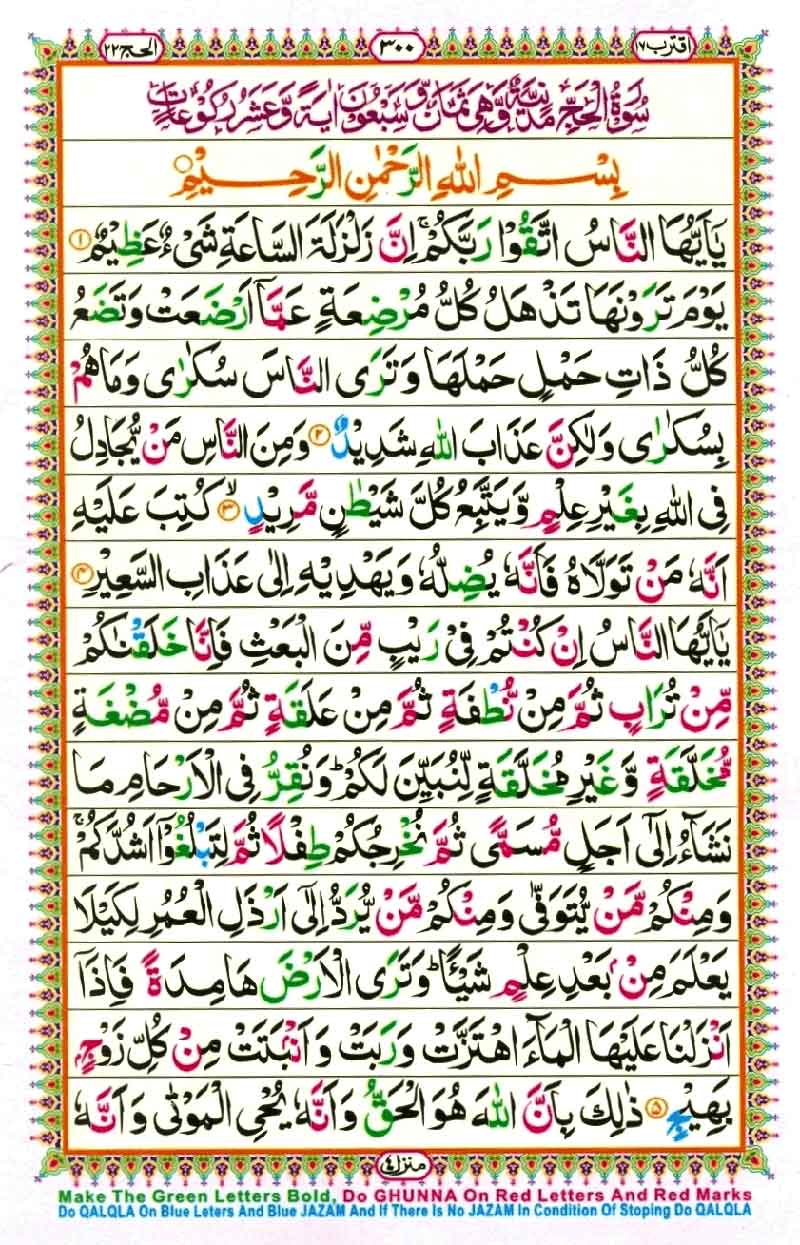 اقترب ١٧ ٣٠٠ الحج ٢٢
سُوْرَةُ الْحَجِّ مَدَنِيَّةٌ وَّهِيَ ثَمَانٌ وَّ سَبْعُوْنَ اٰيَةً وَّعَشْرُ رُكُوْعَاتٍ
بِسْمِ اللهِ الرَّحْمٰنِ الرَّحِيْمِ
يٰۤاَيُّهَا النَّاسُ اتَّقُوْا رَبَّكُمْ ۚ اِنَّ زَلْزَلَةَ السَّاعَةِ شَیْءٌ عَظِيْمٌ ١
يَوْمَ تَرَوْنَهَا تَذْهَلُ كُلُّ مُرْضِعَةٍ عَمَّاۤ اَرْضَعَتْ وَتَضَعُ
كُلُّ ذَاتِ حَمْلٍ حَمْلَهَا وَتَرَى النَّاسَ سُكٰرٰى وَمَا هُمْ
بِسُكٰرٰى وَلٰكِنَّ عَذَابَ اللهِ شَدِيْدٌ ٢ وَمِنَ النَّاسِ مَنْ يُّجَادِلُ
فِى اللهِ بِغَيْرِ عِلْمٍ وَّيَتَّبِعُ كُلَّ شَيْطٰنٍ مَّرِيْدٍ ۙ ٣ كُتِبَ عَلَيْهِ
اَنَّهٗ مَنْ تَوَلَّاهُ فَاَنَّهٗ يُضِلُّهٗ وَيَهْدِيْهِ اِلٰى عَذَابِ السَّعِيْرِ ٤
يٰۤاَيُّهَا النَّاسُ اِنْ كُنْتُمْ فِیْ رَيْبٍ مِّنَ الْبَعْثِ فَاِنَّا خَلَقْنٰكُمْ
مِّنْ تُرَابٍ ثُمَّ مِنْ نُّطْفَةٍ ثُمَّ مِنْ عَلَقَةٍ ثُمَّ مِنْ مُّضْغَةٍ
مُّخَلَّقَةٍ وَّغَيْرِ مُخَلَّقَةٍ لِّنُبَيِّنَ لَكُمْ ؕ وَنُقِرُّ فِى الْاَرْحَامِ مَا
نَشَآءُ اِلٰۤى اَجَلٍ مُّسَمًّى ثُمَّ نُخْرِجُكُمْ طِفْلًا ثُمَّ لِتَبْلُغُوْۤا اَشُدَّكُمْ ۚ
وَمِنْكُمْ مَّنْ يُّتَوَفّٰى وَمِنْكُمْ مَّنْ يُّرَدُّ اِلٰۤى اَرْذَلِ الْعُمُرِ لِكَيْلَا
يَعْلَمَ مِنْۢ بَعْدِ عِلْمٍ شَيْـًٔا ؕ وَتَرَى الْاَرْضَ هَامِدَةً فَاِذَاۤ
اَنْزَلْنَا عَلَيْهَا الْمَآءَ اهْتَزَّتْ وَرَبَتْ وَاَنْۢبَتَتْ مِنْ كُلِّ زَوْجٍۭ
بَهِيْجٍ ٥ ذٰلِكَ بِاَنَّ اللهَ هُوَ الْحَقُّ وَاَنَّهٗ يُحْیِ الْمَوْتٰى وَاَنَّهٗ
منزل ٤
Make The Green Letters Bold, Do GHUNNA On Red Letters And Red Marks
Do QALQLA On Blue Leters And Blue JAZAM And If There Is No JAZAM In Condition Of Stoping Do QALQLA